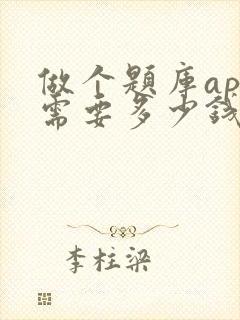 做个题库ap
需要多少钱
李柱梁